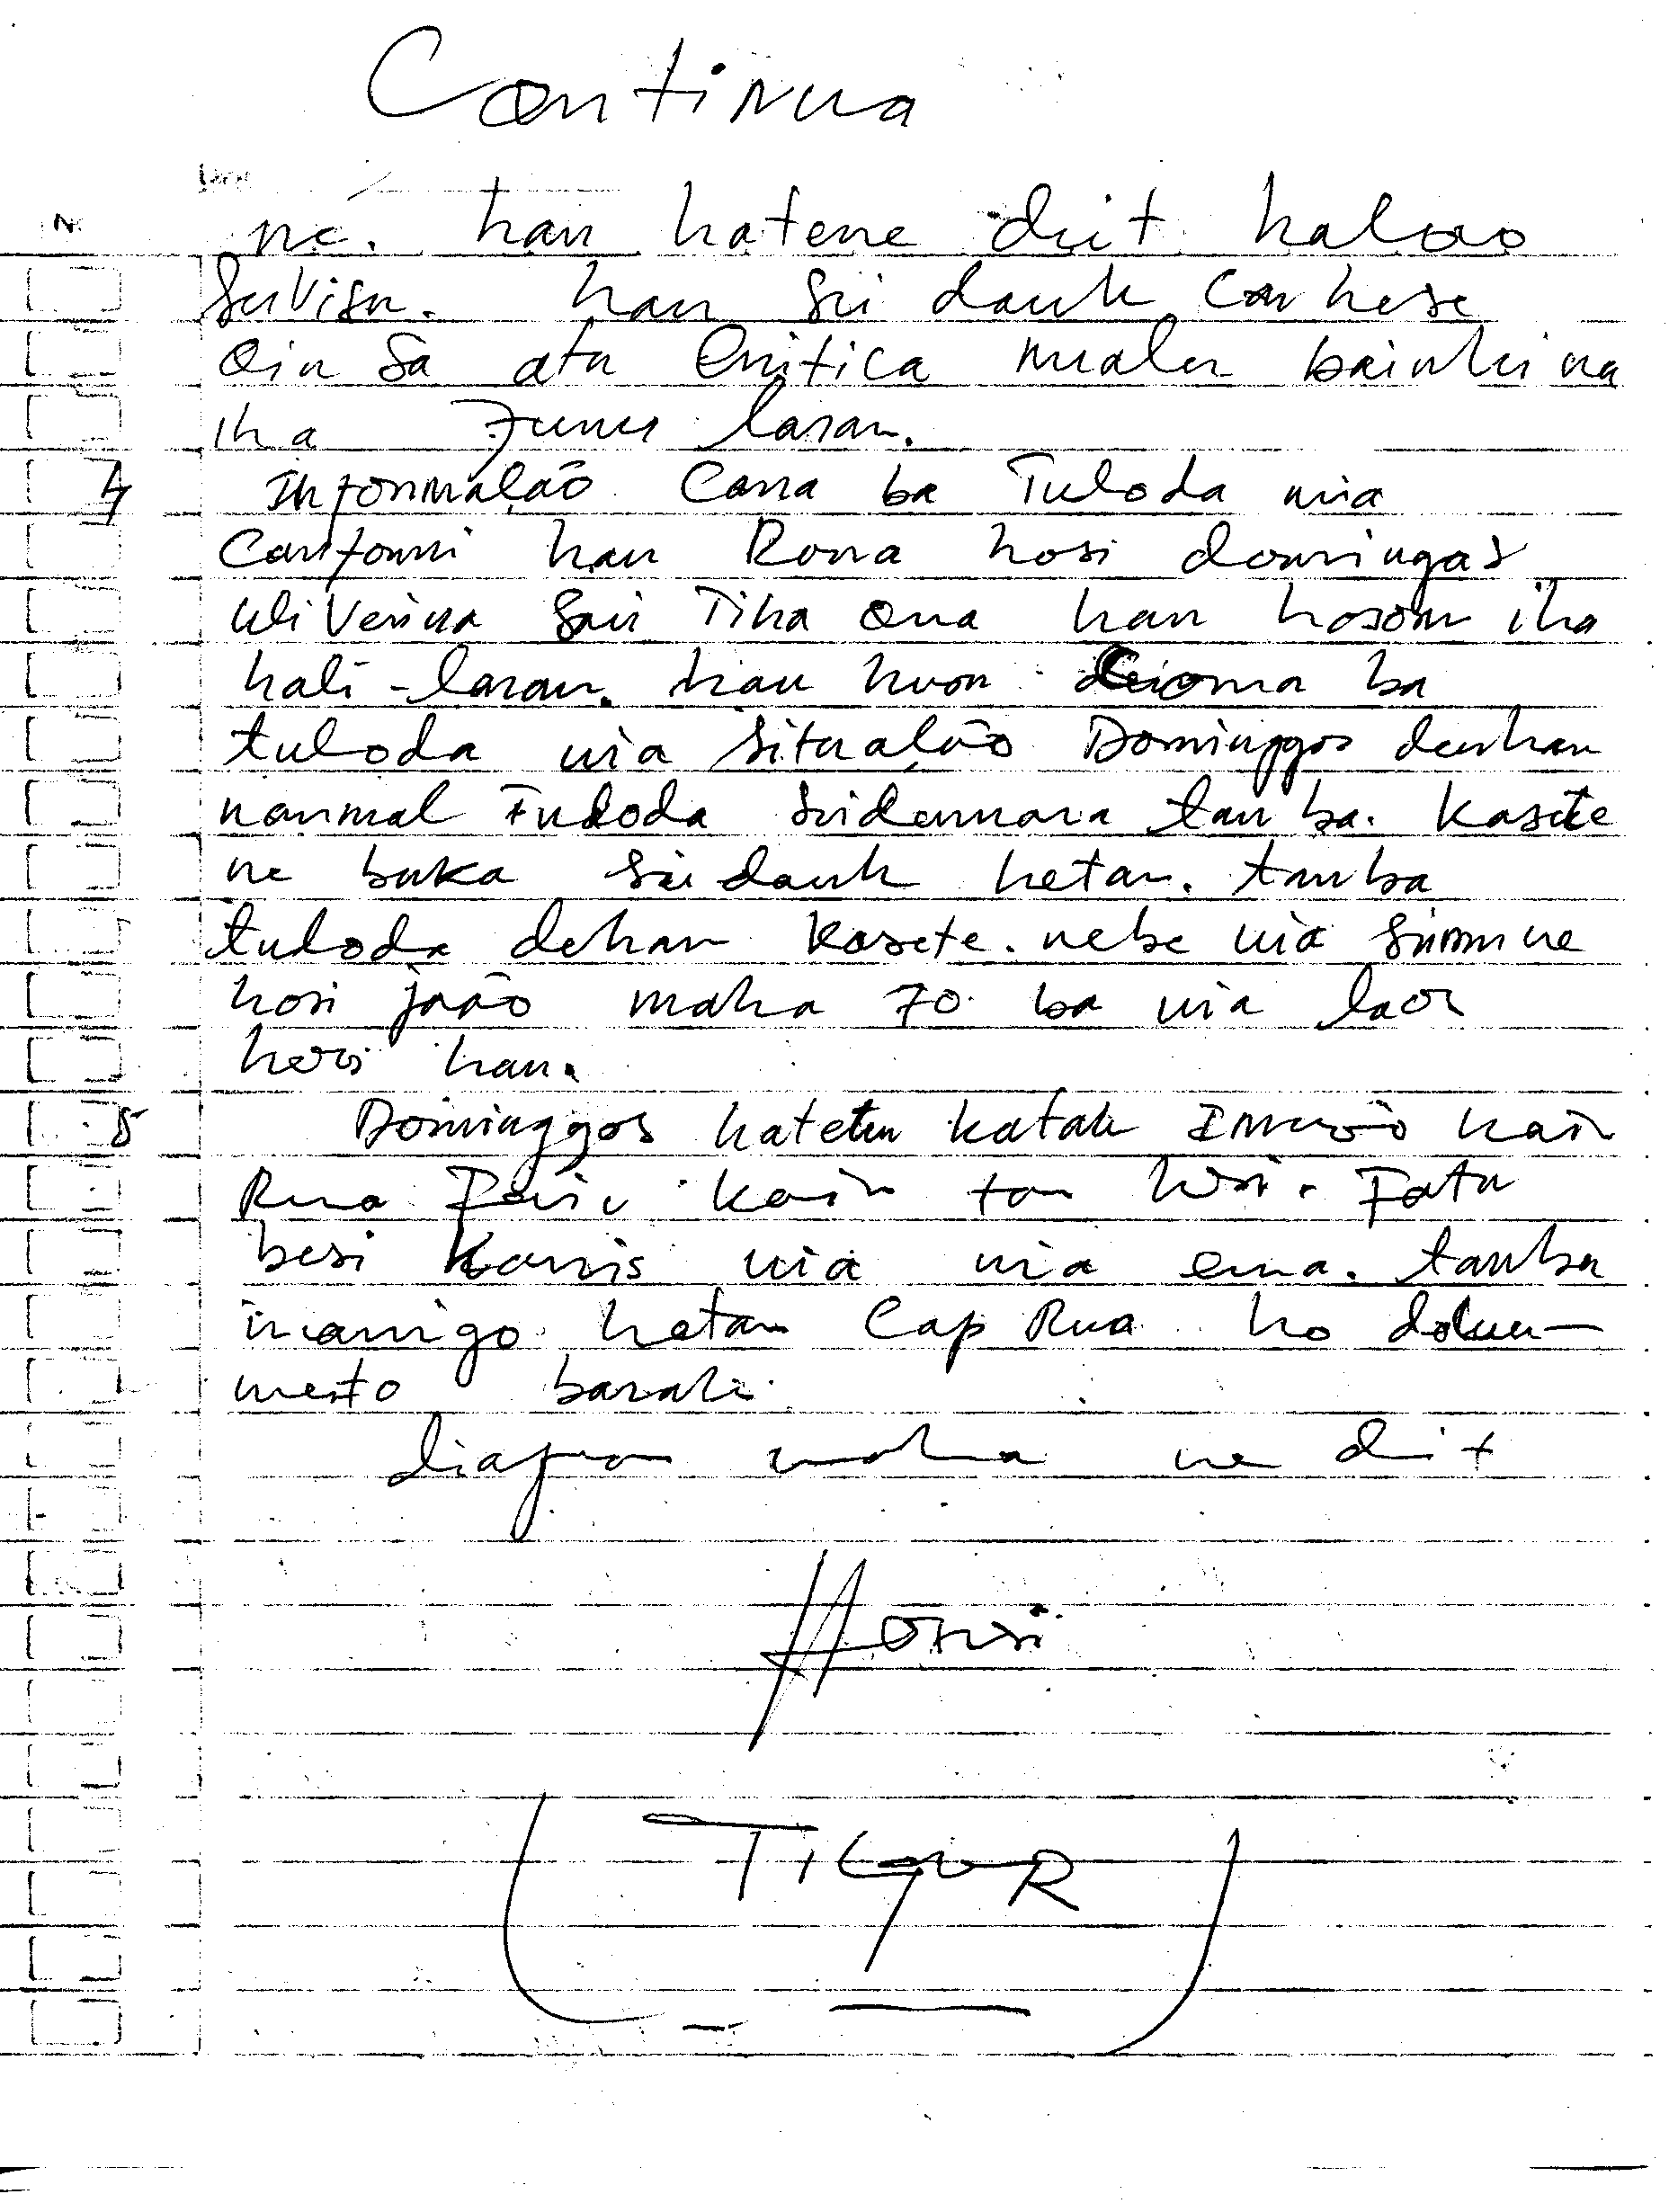 Continua
ne. hau hatene diit halao
Servisu. hau sei dauk Conhese
Oin Sa atu Critica malu bainhira
iha Funu laran.
4 informação Cona ba Tuloda nia
Conforni hau Rona hosi domingas
oliveira Sai Tiha Ona hau hosom iha
hali-laran. hau husu ba
tuloda nia situação Domingos dehan
normal Tuloda tan ba. Kasete
ne buka sei dauk hetan. tanba
tuloda dehan Kasete. nebe nia simu ne
hosi joão maha 70 ba nia laos
hosi hau.
5 Dominggos hatetu katak kain
Rua kain tou hosi. Fatu
besi nia nia ema. tanba
inamigo hetan Cap Rua ho doku-
mento barak.
diapron maha ne diit
Hosi
TIGOR